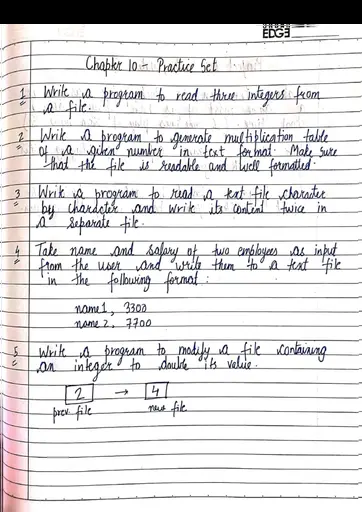 EDGE
Chapter 10 - Practice Set
1 Write a program to read three integers from
a file.
2 Write a program to generate multiplication table
of a given number in text format. Make sure
that the file is readable and well formatted.
3 Write a program to read a text file character
by character and write its content twice in
a separate file.
4 Take name and salary of two employees as input
from the user and write them to a text file
in the following format:
name1, 3300
name2, 7700
5 Write a program to modify a file containing
an integer to double its value.
2 → 4
prev. file new file